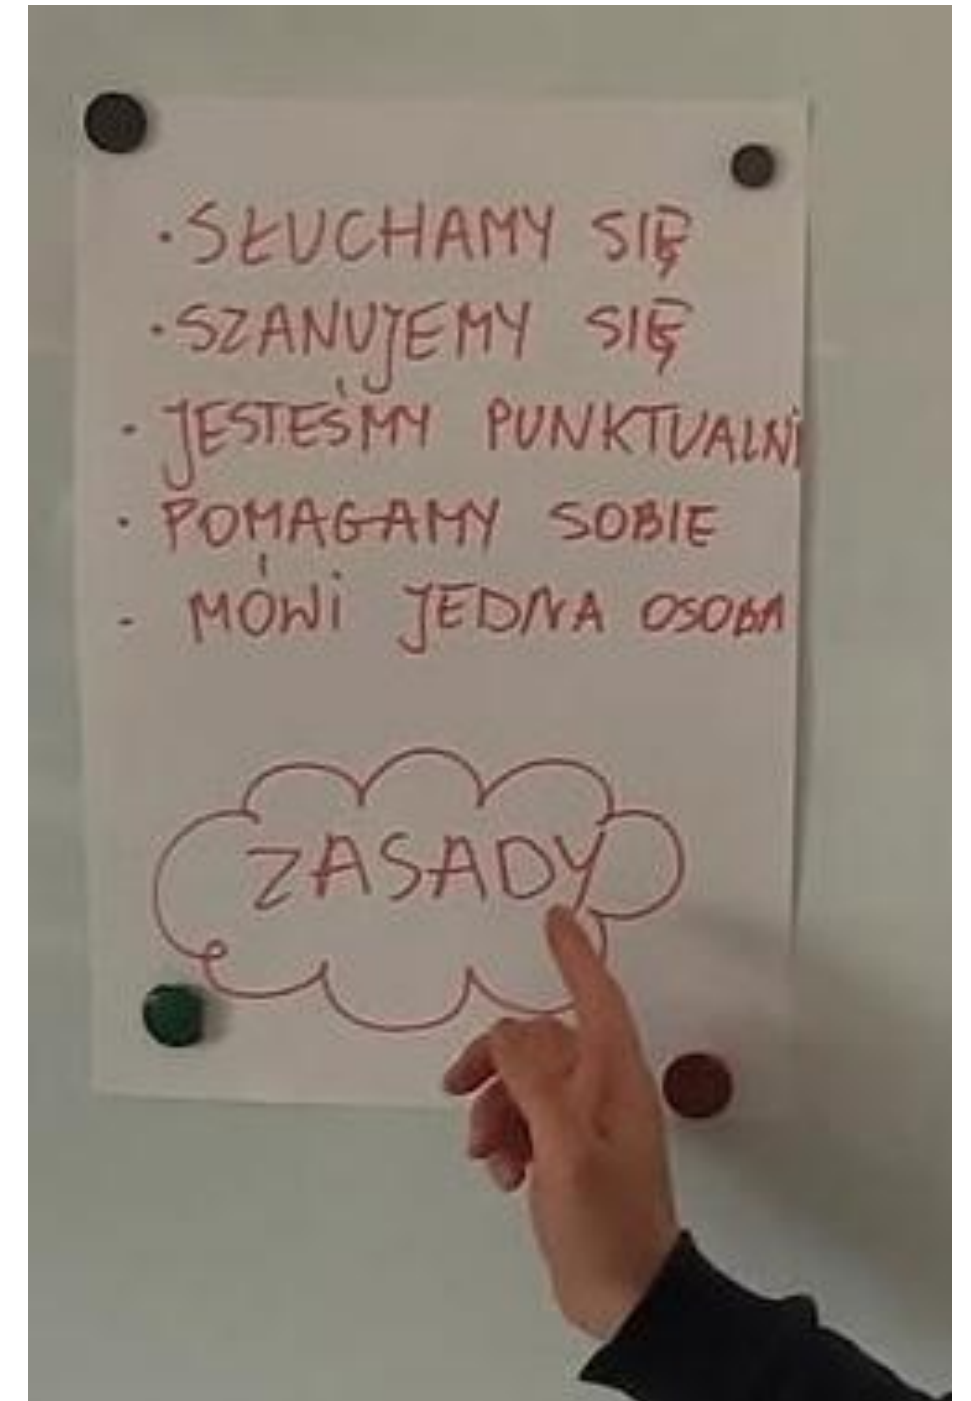 · SŁUCHAMY SIĘ
· SZANUJEMY SIĘ
- JESTEŚMY PUNKTUALNi
· POMAGAMY SOBIE
- MÓWi JEDNA OSOBA
ZASADY